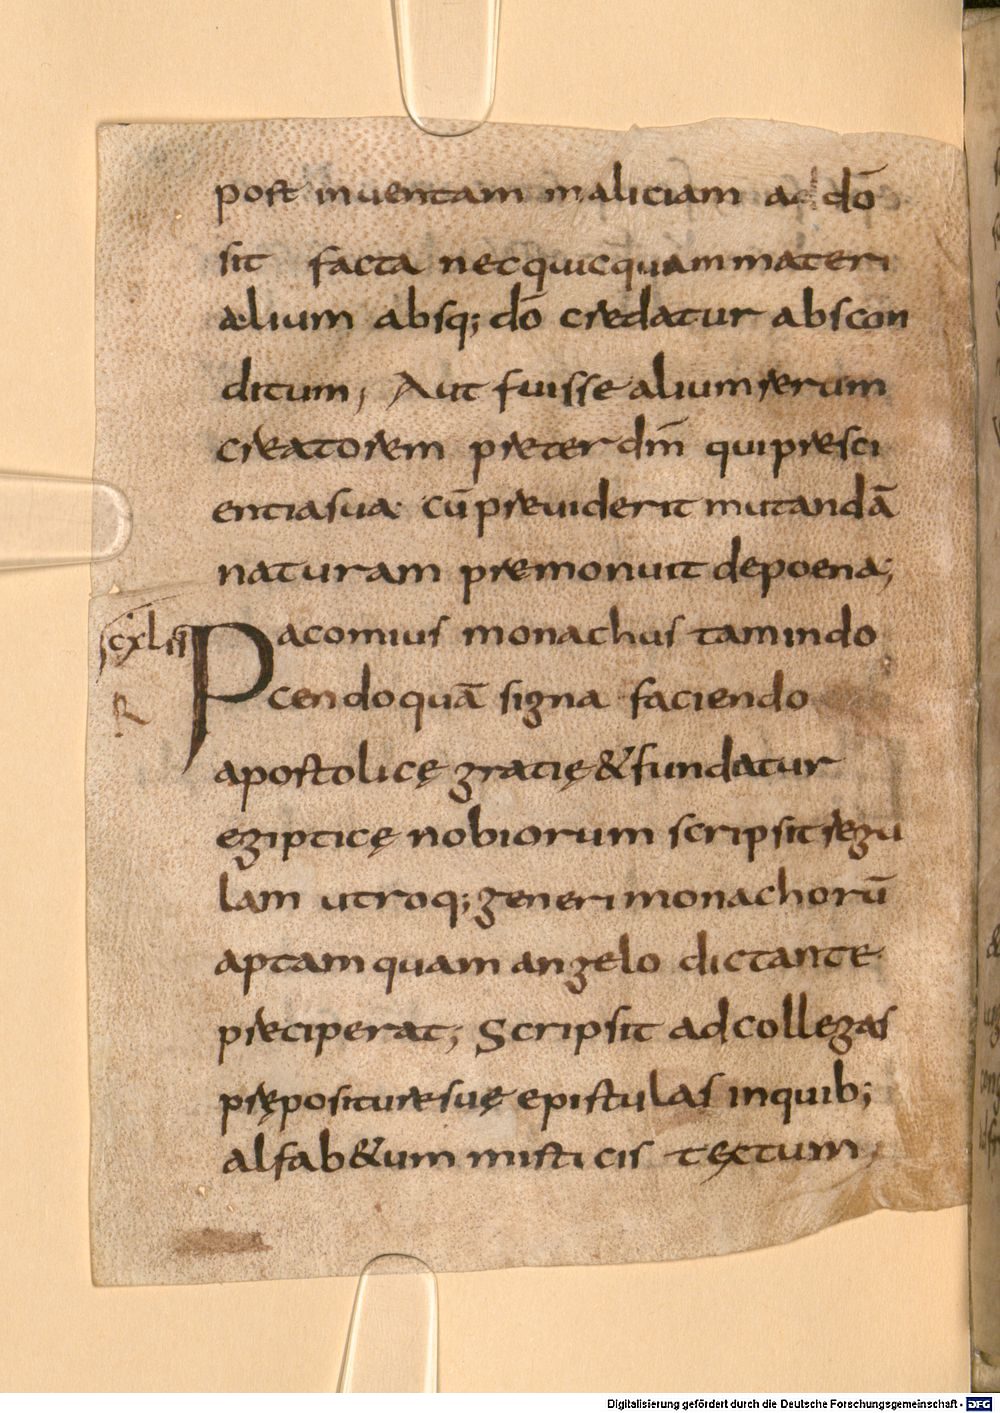 post inventam maliciam ad dō
sit facta nec quicquam materi
alium absq; dō credatur abscon
ditum, Aut fuisse alium rerum
creatorem preter dm̄ qui presci
entia sua cū previderit mutandā
naturam premonuit de poena;
cxlii Pacomius monachus tam in do
R cendo quā signa faciendo
apostolicę gratię & fundatur
egipticę nobiorum scripsit regu
lam utroq; generi monachorū
aptam quam angelo dictante
preciperat; Scripsit ad collegas
prępositure suę epistulas in quib;
alfab&um misticis tęctum,
Digitalisierung gefördert durch die Deutsche Forschungsgemeinschaft - DFG